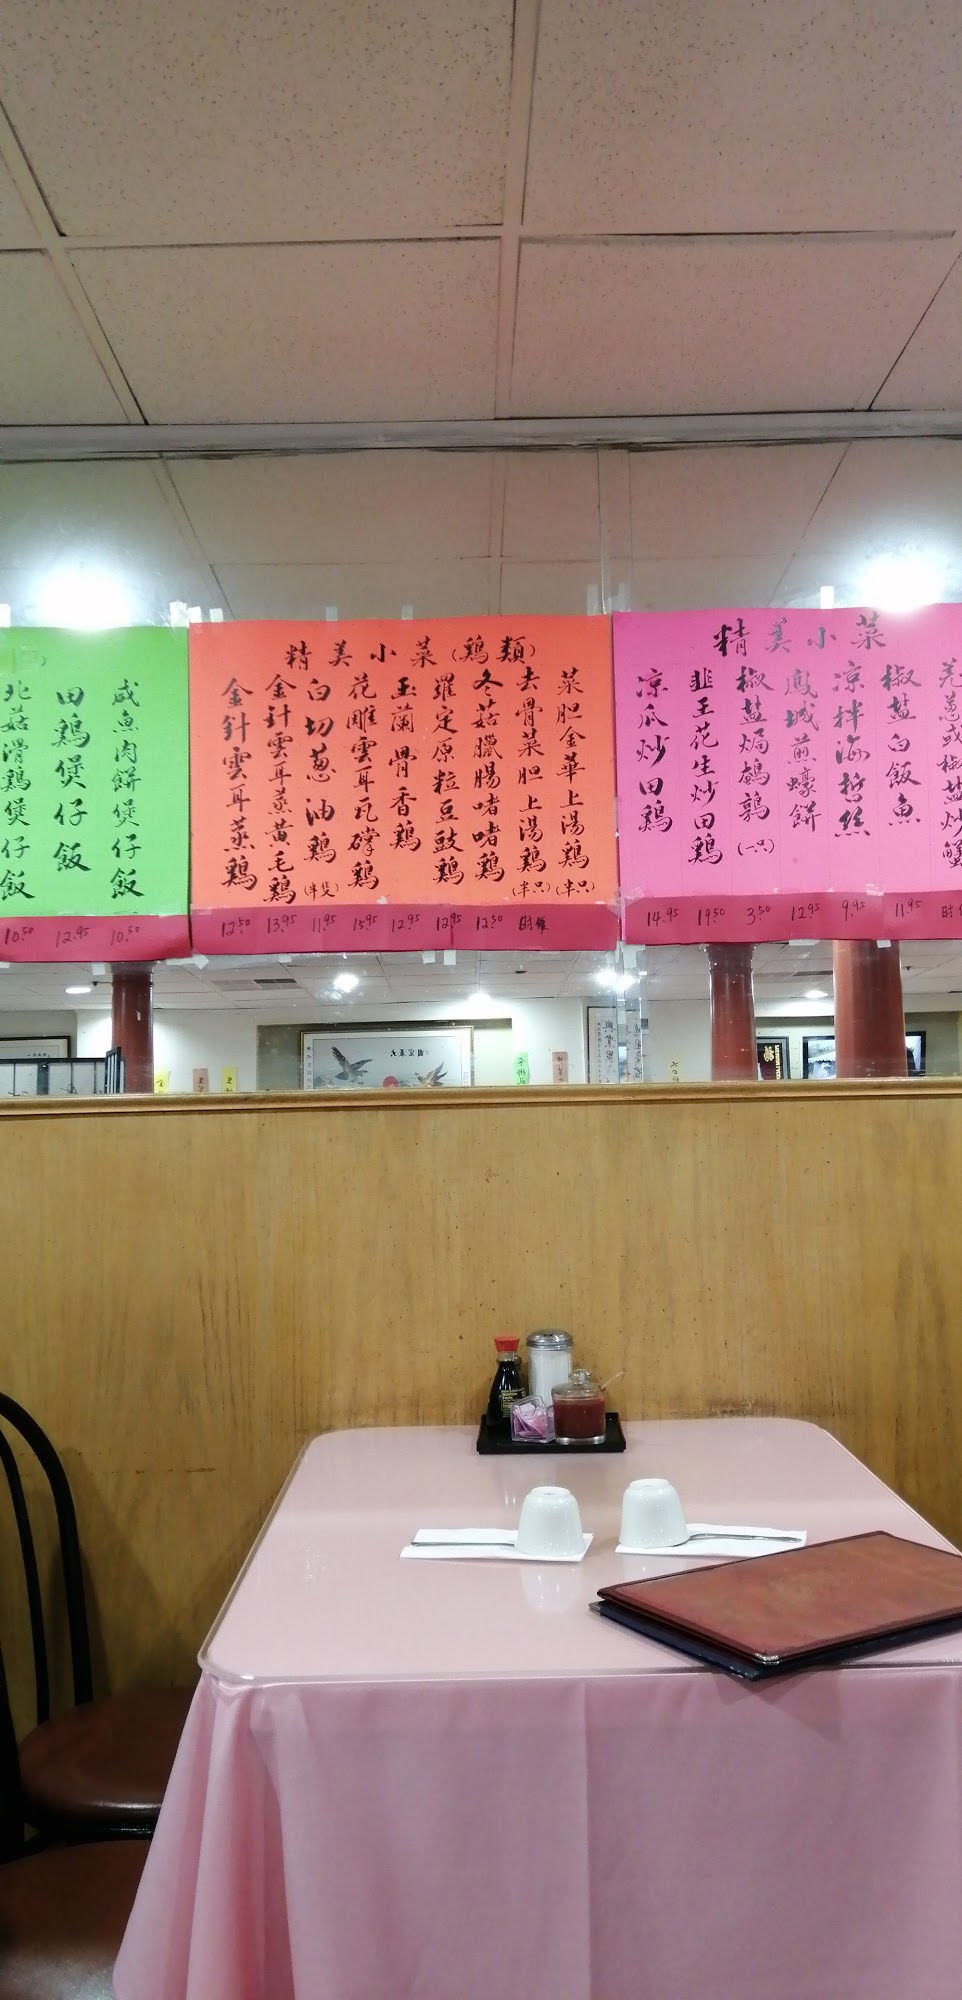 咸魚肉餅煲仔飯
田鷄煲仔飯
北菇滑鷄煲仔飯
10.50 12.95 10.50
精美小菜(鷄類)
菜胆金華上湯鷄(半只)
去骨菜胆上湯鷄(半只)
冬菇臘腸啫啫鷄
羅定原粒豆豉鷄
玉蘭骨香鷄
花雕雲耳瓦罉鷄
白切葱油鷄(半隻)
金針雲耳蒸黄毛鷄
金針雲耳蒸鷄
12.50 13.95 11.95 15.95 12.95 12.95 12.50 時價
精美小菜
羌葱或椒盐炒蟹
椒盐白飯魚
凉拌海哲絲
鳳城煎蠔餅
椒盐焗鹌鹑(一只)
韮王花生炒田鷄
凉瓜炒田鷄
14.95 19.50 3.50 12.95 9.95 11.95 時